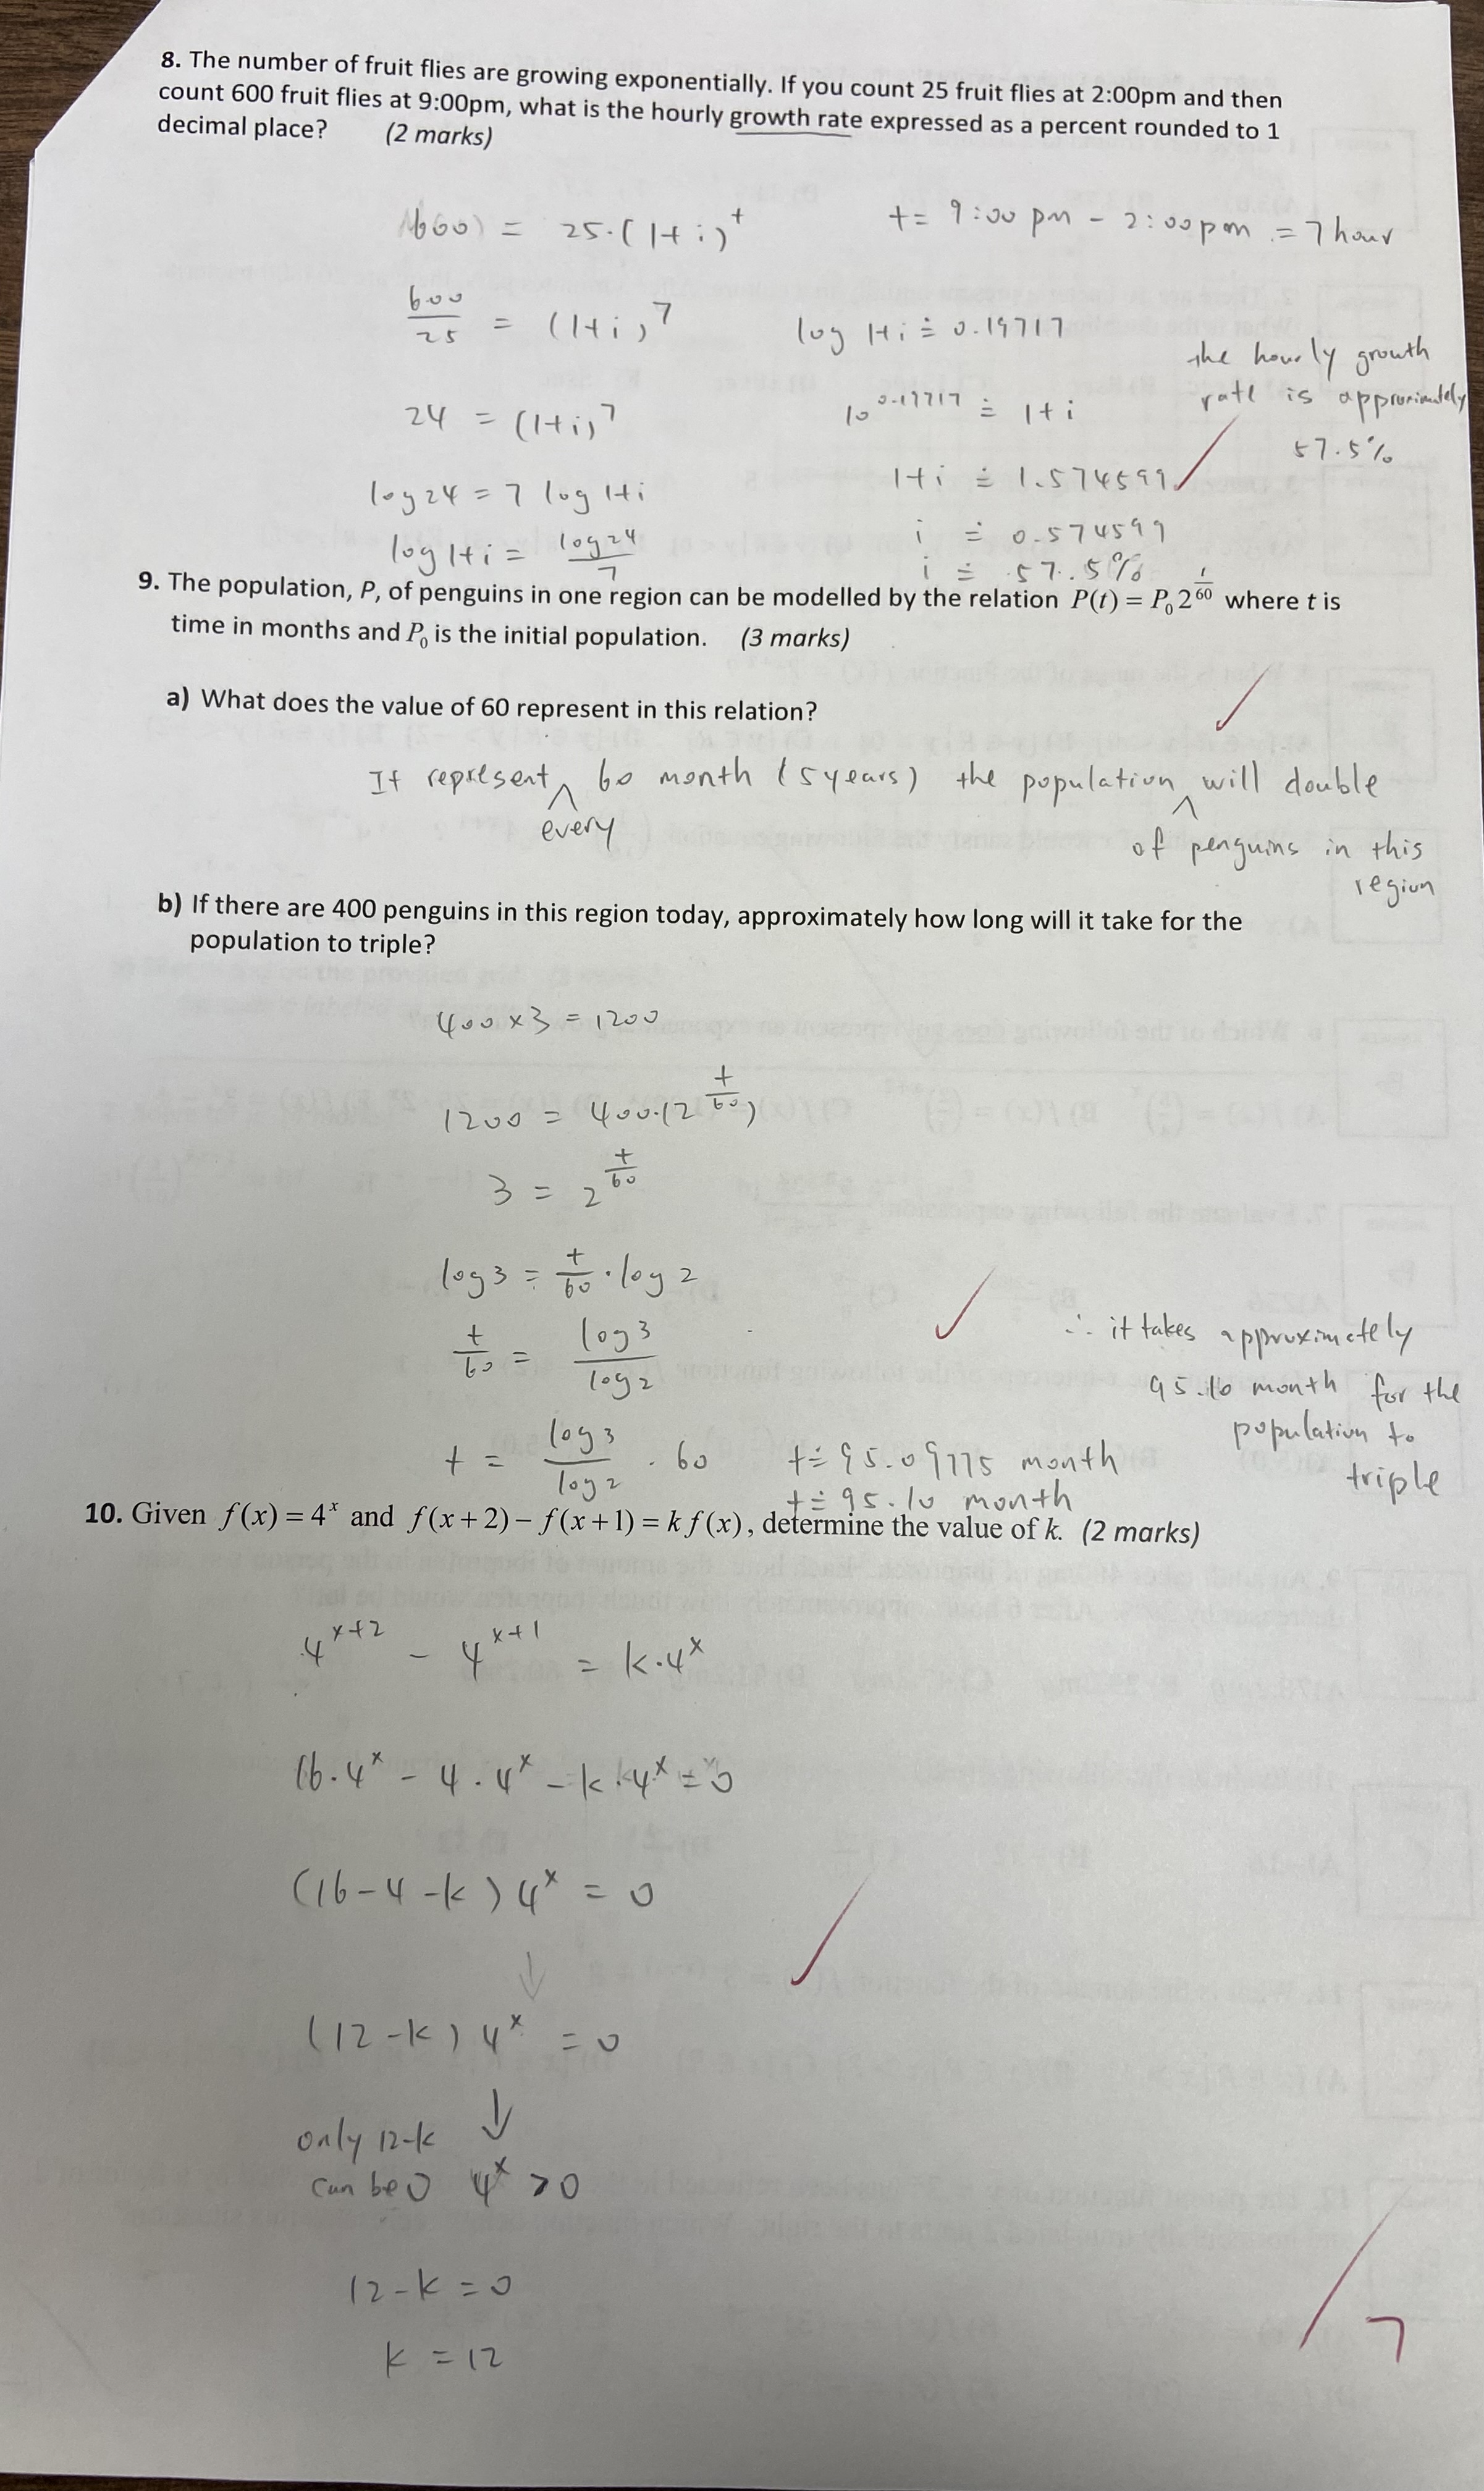 8. The number of fruit flies are growing exponentially. If you count 25 fruit flies at 2:00pm and then
count 600 fruit flies at 9:00pm, what is the hourly growth rate expressed as a percent rounded to 1
decimal place? (2 marks)
600 = 25·(1+i)^t
t = 9:00 pm - 2:00 pm = 7 hour
600/25 = (1+i)^7
24 = (1+i)^7
log 24 = 7 log 1+i
log 1+i = log 24/7
log 1+i ≐ 0.19717
10^0.19717 ≐ 1+i
1+i ≐ 1.574599
i ≐ 0.574599
i ≐ 57.5%
the hourly growth
rate is approximately
57.5%
9. The population, P, of penguins in one region can be modelled by the relation P(t) = P₀2^(t/60) where t is
time in months and P₀ is the initial population. (3 marks)
a) What does the value of 60 represent in this relation?
It represent ^ 60 month (5 years) the population ^ will double
every
of penguins in this
region
b) If there are 400 penguins in this region today, approximately how long will it take for the
population to triple?
400 × 3 = 1200
1200 = 400·(2^(t/60))
3 = 2^(t/60)
log 3 = t/60 · log 2
t/60 = log 3/log 2
t = log 3/log 2 · 60
t ≐ 95.09775 month
t ≐ 95.10 month
∴ it takes approximately
95.10 month for the
population to
triple
10. Given f(x) = 4^x and f(x+2) − f(x+1) = k f(x), determine the value of k. (2 marks)
4^(x+2) - 4^(x+1) = k·4^x
16·4^x - 4·4^x - k·4^x = 0
(16-4-k) 4^x = 0
↓
(12-k) 4^x = 0
↓
only 12-k
can be 0 4^x > 0
12-k = 0
k = 12
/7